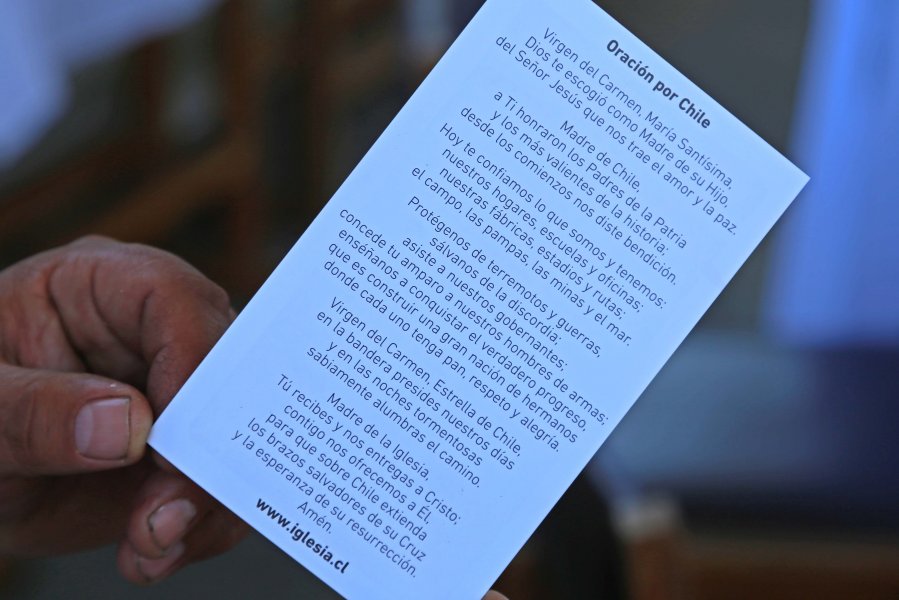 Oración por Chile
Virgen del Carmen, María Santísima,
Dios te escogió como Madre de su Hijo,
del Señor Jesús que nos trae el amor y la paz.
Madre de Chile,
a Ti honraron los Padres de la Patria
y los más valientes de la historia;
desde los comienzos nos diste bendición.
Hoy te confiamos lo que somos y tenemos:
nuestros hogares, escuelas y oficinas;
nuestras fábricas, estadios y rutas;
el campo, las pampas, las minas y el mar.
Protégenos de terremotos y guerras,
sálvanos de la discordia;
asiste a nuestros gobernantes;
concede tu amparo a nuestros hombres de armas;
enséñanos a conquistar el verdadero progreso,
que es construir una gran nación de hermanos
donde cada uno tenga pan, respeto y alegría.
Virgen del Carmen, Estrella de Chile,
en la bandera presides nuestros días
y en las noches tormentosas
sabiamente alumbras el camino.
Madre de la Iglesia,
Tú recibes y nos entregas a Cristo:
contigo nos ofrecemos a Él,
para que sobre Chile extienda
los brazos salvadores de su Cruz
y la esperanza de su resurrección.
Amén.
www.iglesia.cl